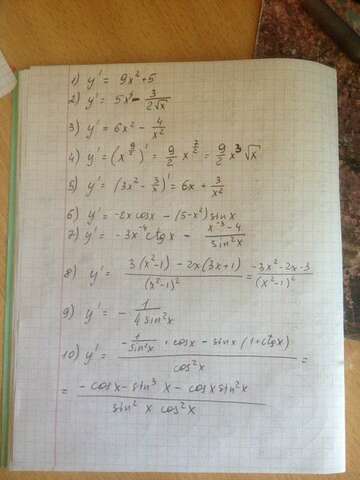 1) y' = 9x² + 5
2) y' = 5x⁴ - 3/(2√x)
3) y' = 6x² - 4/x²
4) y' = (x^(9/2))' = 9/2 x^(7/2) = 9/2 x³ √x
5) y' = (3x² - 3/x)' = 6x + 3/x²
6) y' = -2x cosx - (5-x²) sinx
7) y' = -3x⁻⁴ ctgx - (x⁻³-4)/(sin²x)
8) y' = (3(x²-1) - 2x(3x+1))/((x²-1)²) = (-3x²-2x-3)/((x²-1)²)
9) y' = - 1/(4sin²x)
10) y' = (-1/(sin²x) · cosx - sinx (1+ctgx))/(cos²x) =
= (-cosx - sin³x - cosx sin²x)/(sin²x cos²x)